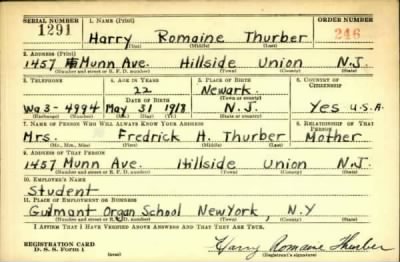 SERIAL NUMBER 1. NAME (Print) ORDER NUMBER
1291 Harry Romaine Thurber 246
(First) (Middle) (Last)
2. ADDRESS (Print)
1457 Munn Ave. Hillside Union N.J.
(Number and street or R. F. D. number) (Town) (County) (State)
3. TELEPHONE 4. AGE IN YEARS 5. PLACE OF BIRTH 6. COUNTRY OF CITIZENSHIP
22 Newark
DATE OF BIRTH (Town or county)
Wa3-4994 May 31 1918 N.J. Yes U.S.A.
(Exchange) (Number) (Mo.) (Day) (Yr.) (State or country)
7. NAME OF PERSON WHO WILL ALWAYS KNOW YOUR ADDRESS 8. RELATIONSHIP OF THAT PERSON
Mrs. Fredrick H. Thurber Mother
(Mr., Mrs., Miss) (First) (Middle) (Last)
9. ADDRESS OF THAT PERSON
1457 Munn Ave. Hillside Union N.J.
(Number and street or R. F. D. number) (Town) (County) (State)
10. EMPLOYER'S NAME
Student
11. PLACE OF EMPLOYMENT OR BUSINESS
Guilmant Organ School New York, N.Y
(Number and street or R. F. D. number) (Town) (County) (State)
I AFFIRM THAT I HAVE VERIFIED ABOVE ANSWERS AND THAT THEY ARE TRUE.
REGISTRATION CARD
D. S. S. Form 1 (over) Harry Romaine Thurber
(Registrant's signature)